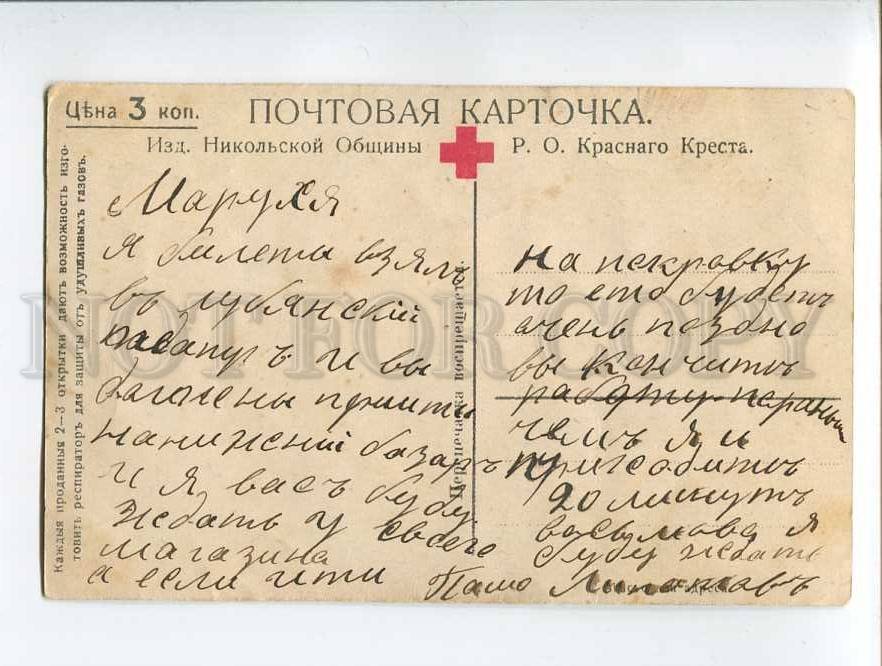 Цѣна 3 коп.
ПОЧТОВАЯ КАРТОЧКА.
Изд. Никольской Общины Р. О. Краснаго Креста.
Каждыя проданныя 2—3 открытки даютъ возможность изго-
товить респираторъ для защиты отъ удушливыхъ газовъ.
Перепечатка воспрещается.
Маруся
я билеты взялъ
въ лубянскій
и вы
должены прийти
нанижній базаръ
и я васъ буду
ждать у своего
магазина
а если ити
на покровку
то ето будетъ
очень поздно
вы кончитъ
работу пораньш
чемъ я и
приходитъ
20 минутъ
восьмова я
буду ждать
NOT FOR COPY